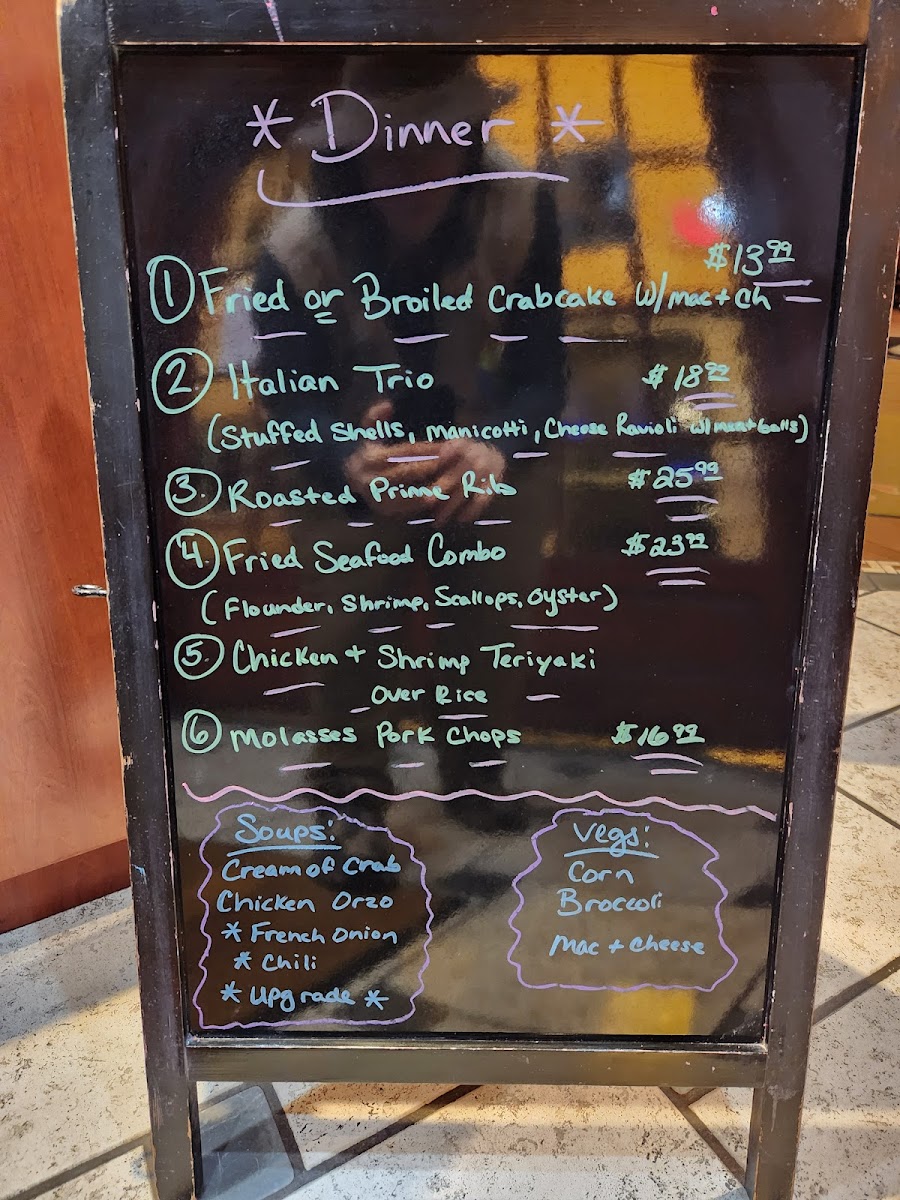 * Dinner *
$13.99
1 Fried or Broiled Crabcake w/mac + ch
2 Italian Trio $18.99
(Stuffed Shells, Manicotti, Cheese Ravioli w/meatballs)
3. Roasted Prime Rib $25.99
4. Fried Seafood Combo $23.99
(Flounder, Shrimp, Scallops, Oyster)
5. Chicken + Shrimp Teriyaki
Over Rice
6 Molasses Pork Chops $16.99
Soups:
Cream of Crab
Chicken Orzo
* French Onion
* Chili
* Upgrade *
Vegs:
Corn
Broccoli
Mac + Cheese